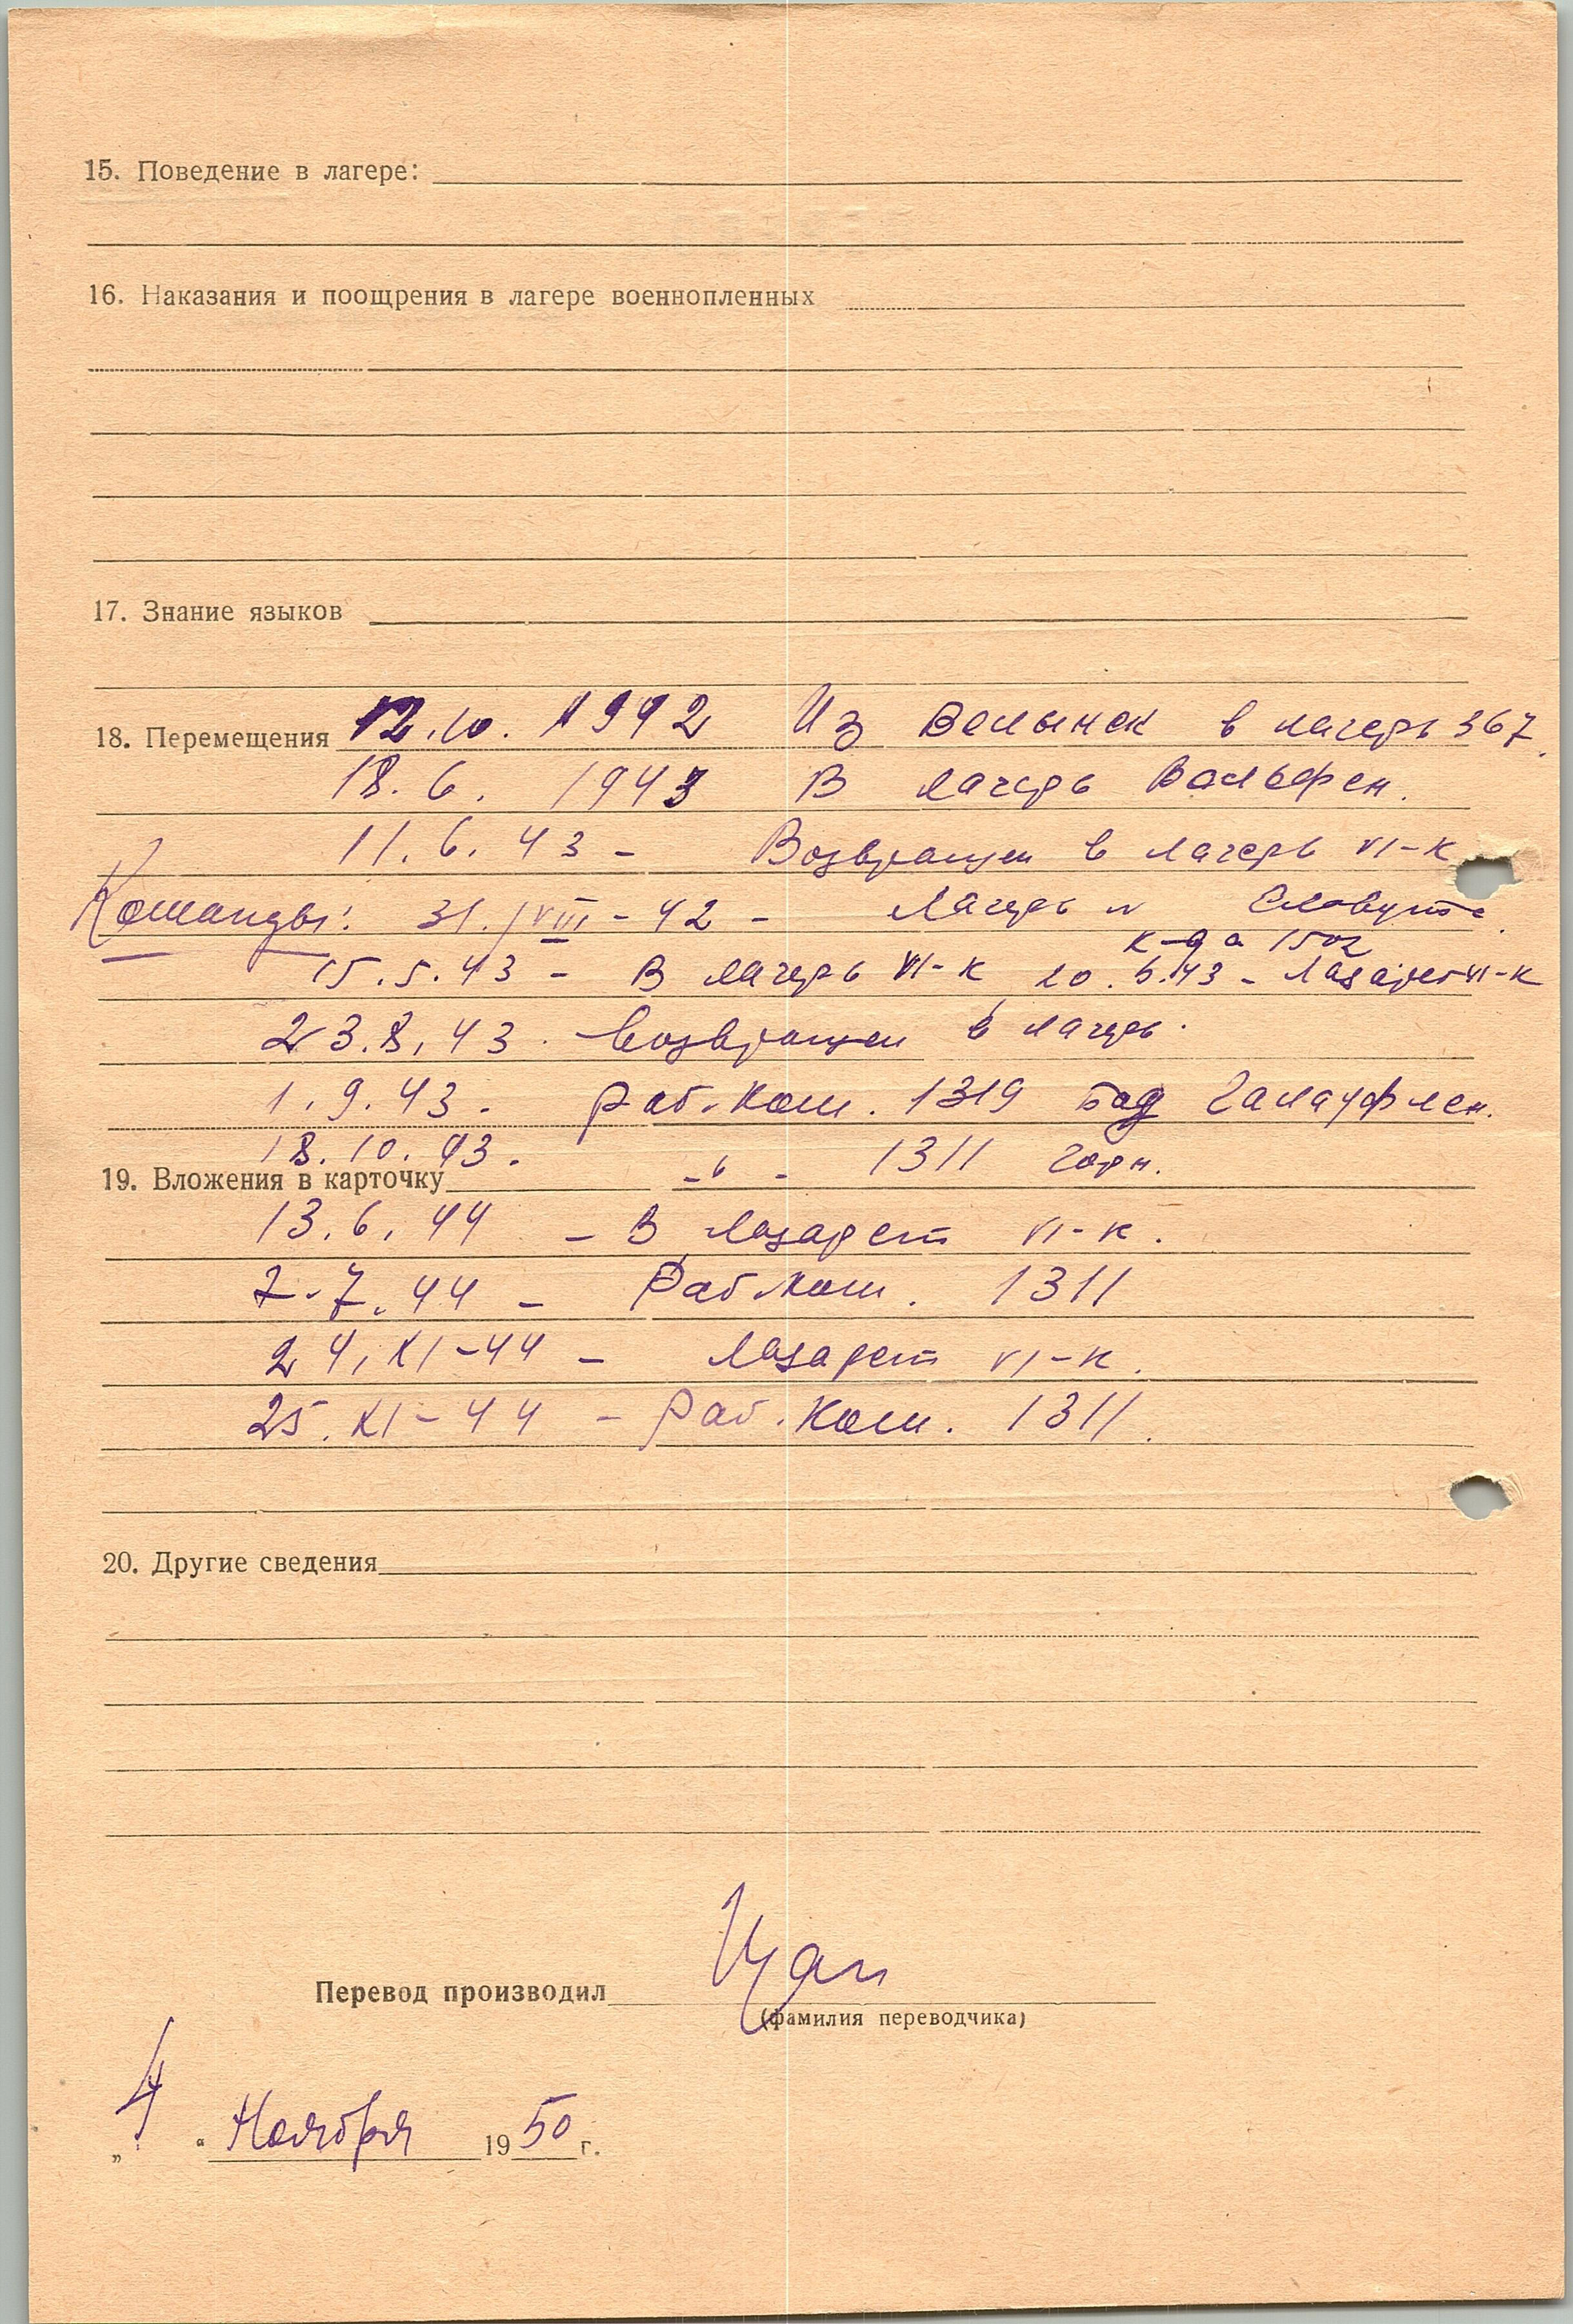 15. Поведение в лагере:
16. Наказания и поощрения в лагере военнопленных
17. Знание языков
18. Перемещения 12.10. 1942 Из Волынск в лагерь 367.
18. 6. 1943 В лагерь Вальфен.
11. 6. 43 - Возвращен в лагерь VI-К
Команды: 31. VIII - 42 - Лагерь Славута.
к-да 1502
15. 5. 43 - В лагерь VI-К 20. 5. 43 - Лазарет VI-К
23. 8. 43. Возвращен в лагерь.
1. 9. 43. Раб. Ком. 1319 Бад
18. 10. 43. -"- 1311 Горн.
19. Вложения в карточку
13. 6. 44 - В Лазарет VI-К.
7. 7. 44 - Раб. Ком. 1311
24. XI-44 - Лазарет VI-К.
25. XI-44 - Раб. Ком. 1311.
20. Другие сведения
Перевод производил
(фамилия переводчика)
„4“ Ноября 1950 г.